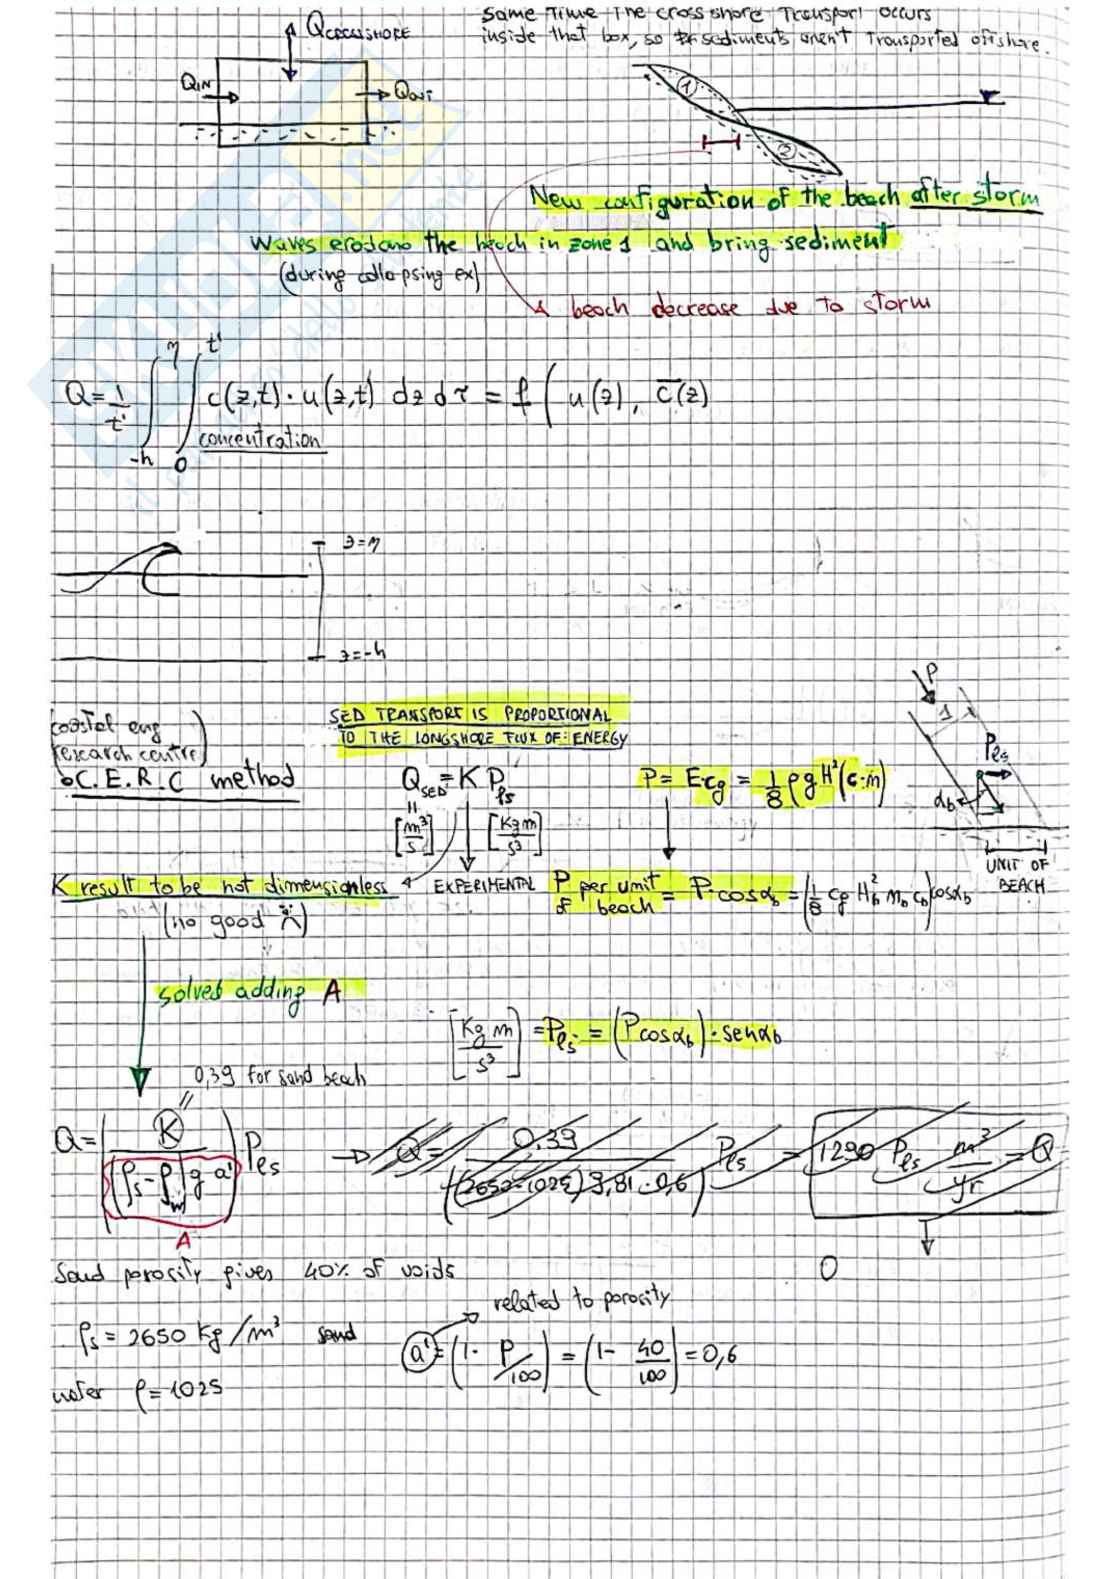 Same Time The cross shore Transport occurs
inside that box, so sediments aren't Transported offshore.
QCROSSSHORE
QIN
QOUT
1
2
New configuration of the beach after storm
Waves erodono the beach in zone 1 and bring sediment
(during collapsing ex)
beach decrease due to storm
Q = 1/t' ∫-h^η ∫0^t' c(z,t) · u(z,t) dz dτ = f ( u(z), c̄(z)
concentration
z=η
z=-h
P
1
Pes
αb
UNIT OF
BEACH
coastal eng
research centre)
C.E.R.C method
SED TRANSPORT IS PROPORTIONAL
TO THE LONGSHORE FLUX OF ENERGY
QSED = K Pℓs
[m³/s] [Kg m/s³]
EXPERIMENTAL
P = Ecg = 1/8 ρg H² (c·n)
K result to be not dimensionless
(no good )
P per unit of beach = P·cosαb = (1/8 cg Hb² mb cb) cosαb
solved adding A
[Kg m/s³] = Pℓs = (P cosαb) · senαb
0,39 for sand beach
Q = (K / (ρs - ρw) g a') Pℓs
A
→ Q = 0,39 / ((2650-1025) 9,81 · 0,6) Pℓs = 1290 Pℓs m³/yr = Q
O
Sand porosity gives 40% of voids
ρs = 2650 Kg/m³ sand
related to porosity
a' = (1 - P/100) = (1 - 40/100) = 0,6
water ρ = 1025